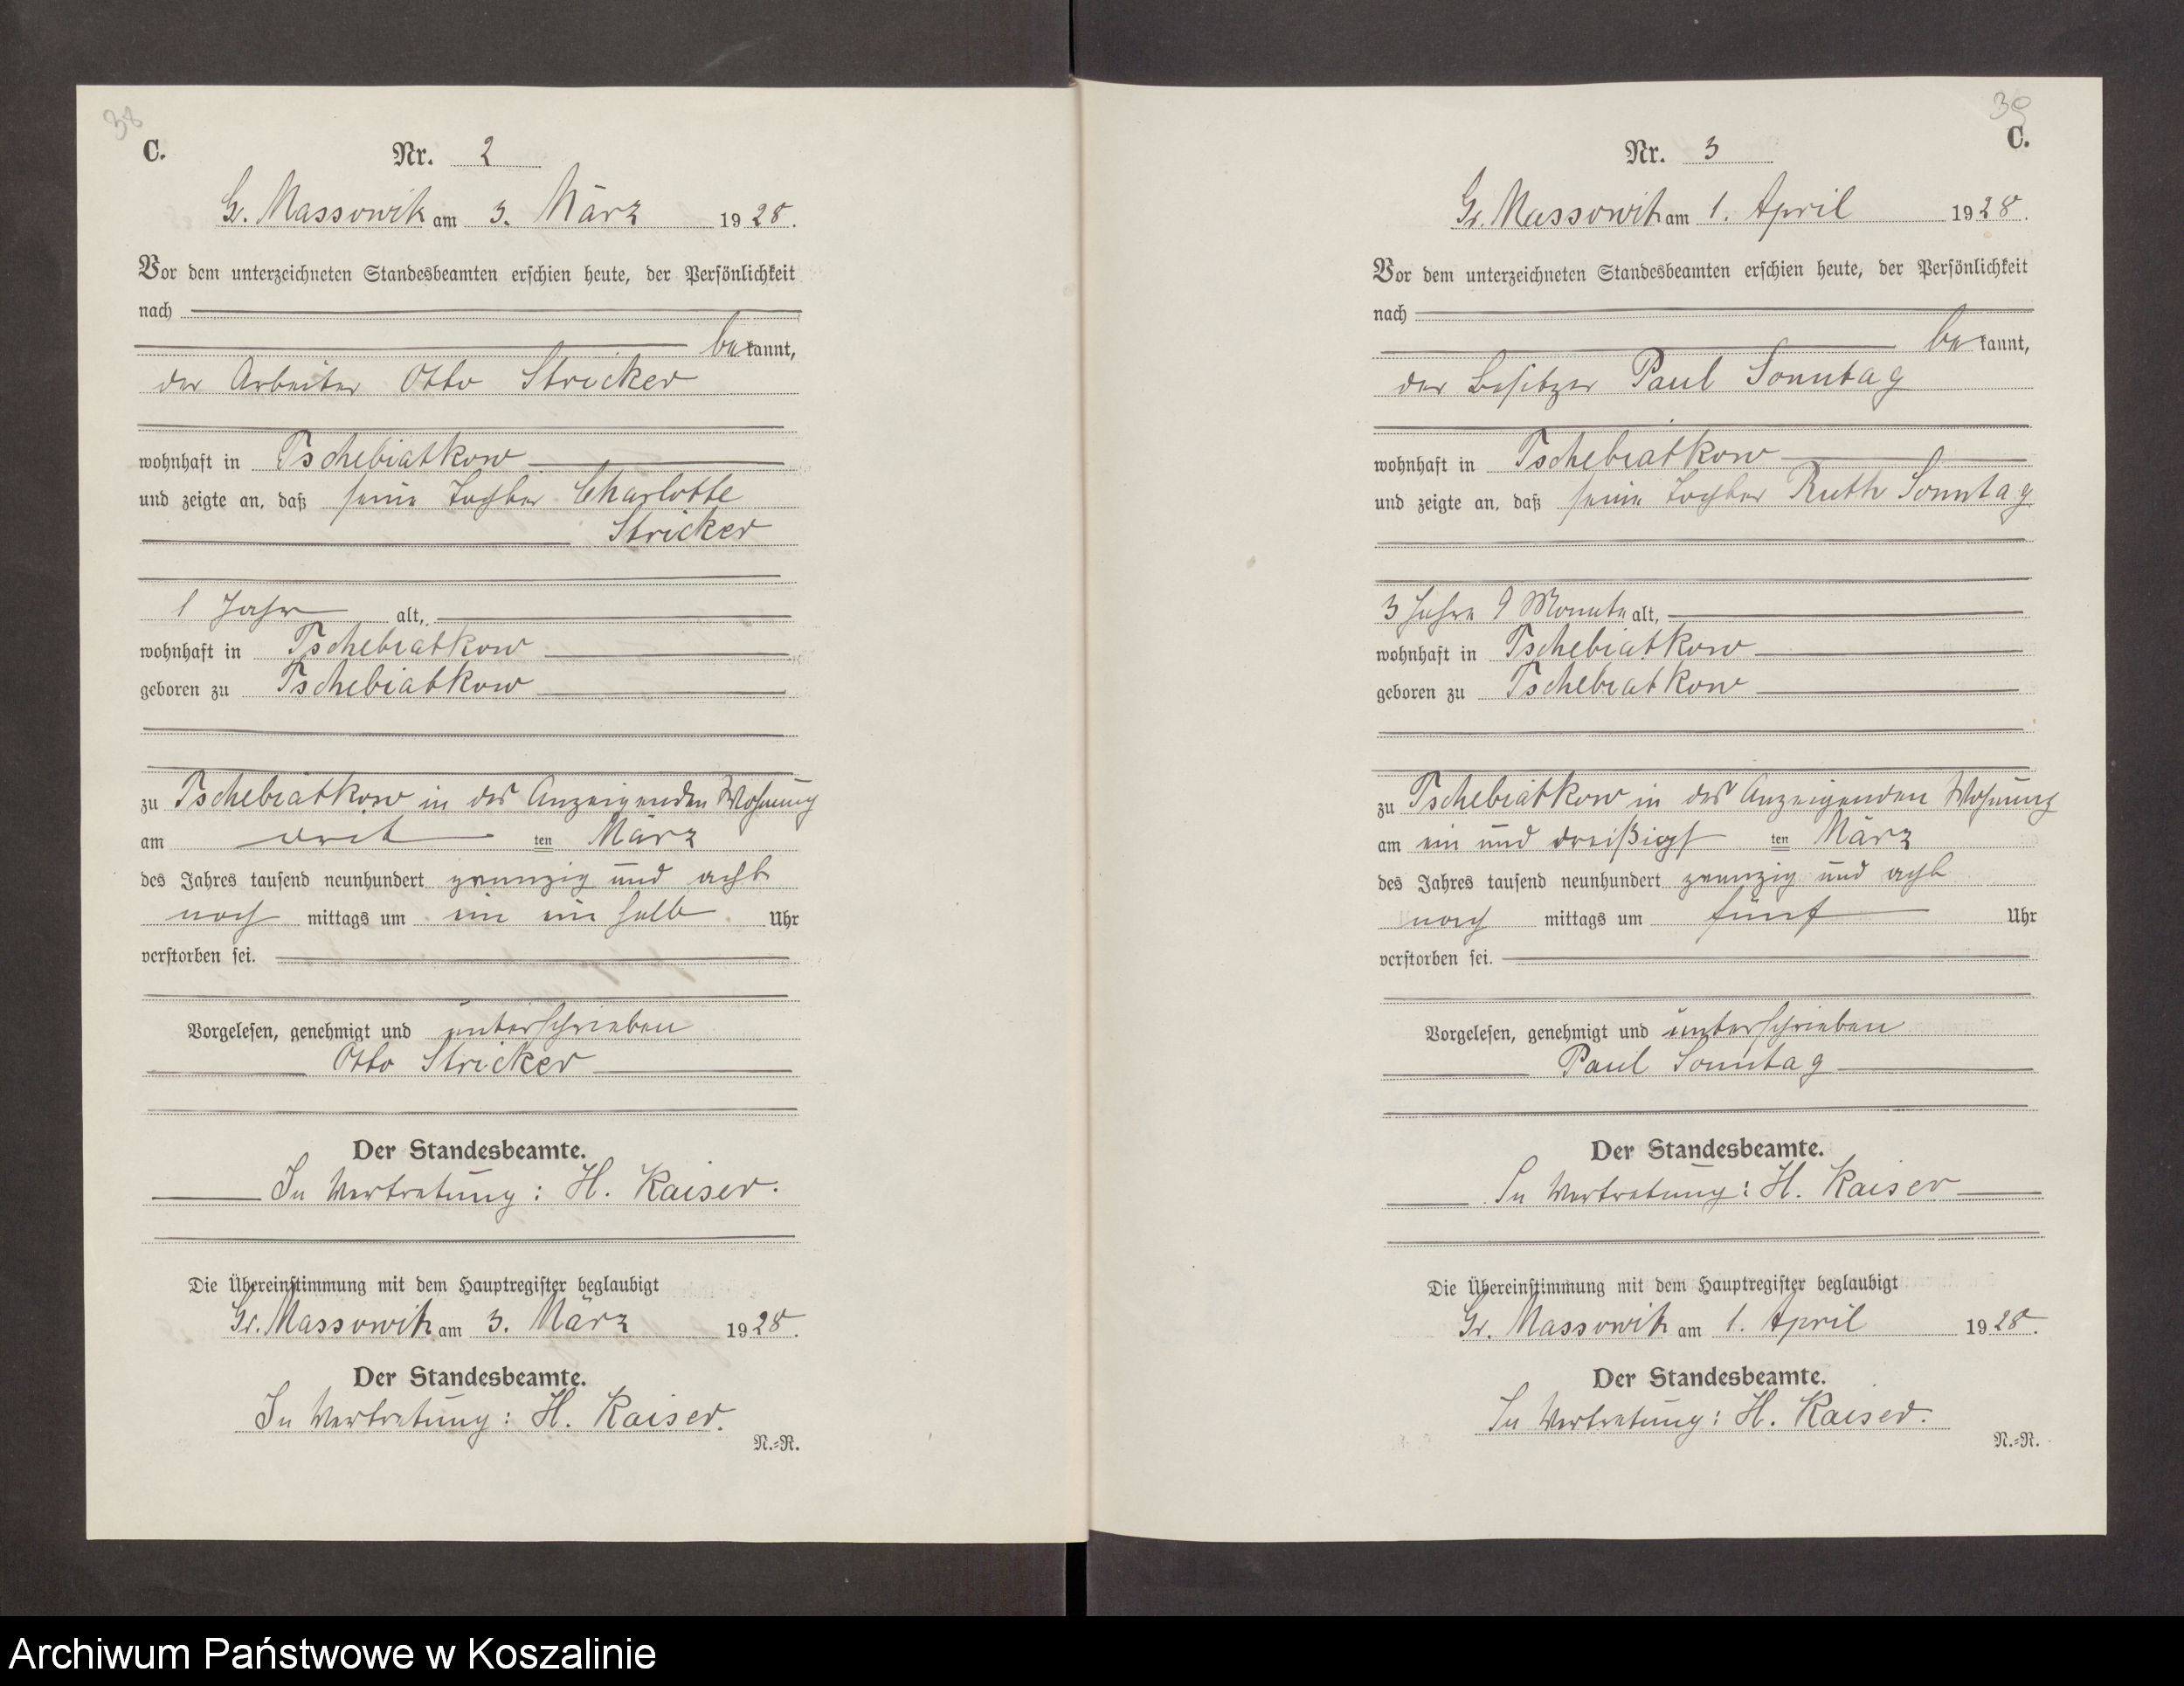 38
C.
Nr. 2
Gr. Massowitz am 3. März 1928.
Vor dem unterzeichneten Standesbeamten erschien heute, der Persönlichkeit
nach
bekannt,
der Arbeiter Otto Stricker
wohnhaft in Tschebiatkow
und zeigte an, daß seine Tochter Charlotte
Stricker
1 Jahr alt,
wohnhaft in Tschebiatkow
geboren zu Tschebiatkow
zu Tschebiatkow in des Anzeigenden Wohnung
am drit ten März
des Jahres tausend neunhundert zwanzig und acht
nach mittags um ein ein halb Uhr
verstorben sei.
Vorgelesen, genehmigt und unterschrieben
Otto Stricker
Der Standesbeamte.
In Vertretung: H. Kaiser.
Die Übereinstimmung mit dem Hauptregister beglaubigt
Gr. Massowitz am 3. März 1928.
Der Standesbeamte.
In Vertretung: H. Kaiser.
N.-R.
39
C.
Nr. 3
Gr. Massowitz am 1. April 1928.
Vor dem unterzeichneten Standesbeamten erschien heute, der Persönlichkeit
nach
bekannt,
der Besitzer Paul Sonntag
wohnhaft in Tschebiatkow
und zeigte an, daß seine Tochter Ruth Sonntag
3 Jahre 9 Monate alt,
wohnhaft in Tschebiatkow
geboren zu Tschebiatkow
zu Tschebiatkow in des Anzeigenden Wohnung
am ein und dreißigst ten März
des Jahres tausend neunhundert zwanzig und acht
nach mittags um fünf Uhr
verstorben sei.
Vorgelesen, genehmigt und unterschrieben
Paul Sonntag
Der Standesbeamte.
In Vertretung: H. Kaiser
Die Übereinstimmung mit dem Hauptregister beglaubigt
Gr. Massowitz am 1. April 1928.
Der Standesbeamte.
In Vertretung: H. Kaiser.
N.-R.
Archiwum Państwowe w Koszalinie